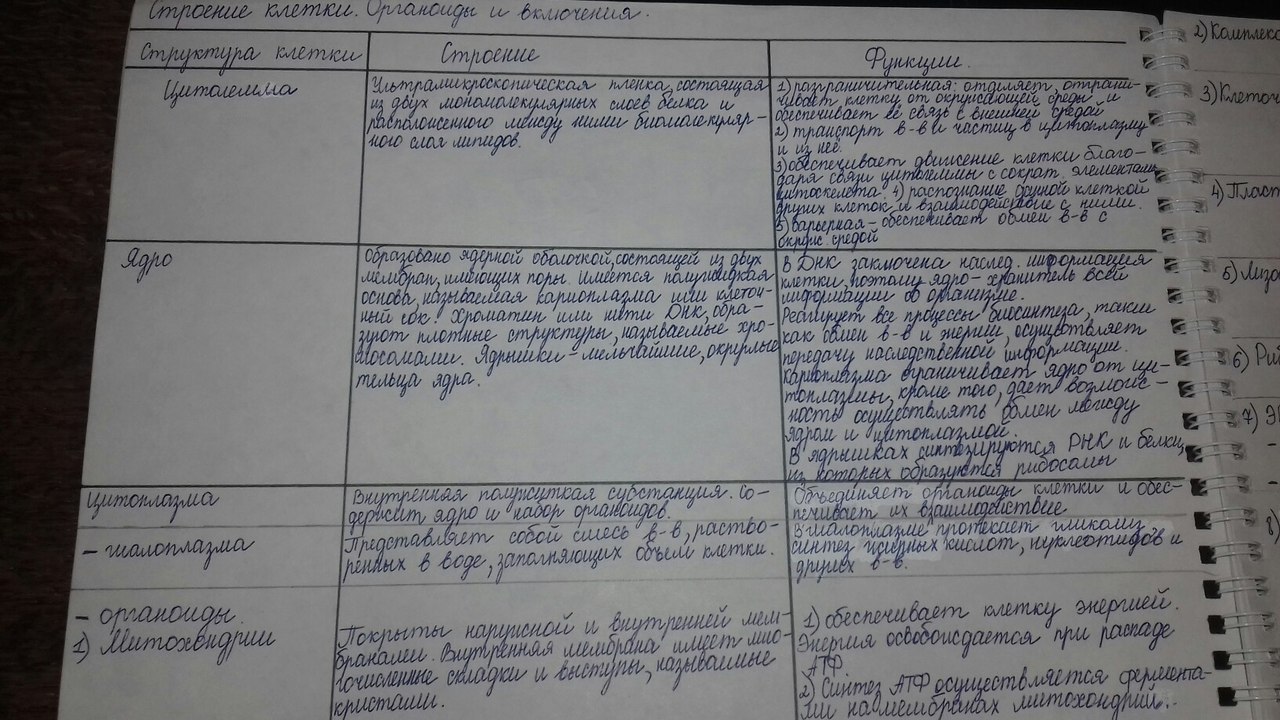 Строение клетки. Органоиды и включения.
Структура клетки
Строение
Функции.
Цитолемма
Ультрамикроскопическая пленка, состоящая
из двух мономолекулярных слоев белка и
расположенного между ними бимолекуляр-
ного слоя липидов.
1) разграничительная: отделяет, отграни-
чивает клетку от окружающей среды и
обеспечивает ее связь с внешней средой
2) транспорт в-в и частиц в цитоплазму
и из нее.
3) обеспечивает движение клетки благо-
даря связи цитолеммы с сократ. элементами
цитоскелета 4) распознание данной клеткой
других клеток и взаимодействие с ними.
5) барьерная - обеспечивает обмен в-в с
окруж. средой
Ядро
Образовано ядерной оболочкой, состоящей из двух
мембран, имеющих поры. Имеется полужидкая
основа, называемая кариоплазма или клеточ-
ный сок. Хроматин или нити ДНК, обра-
зуют плотные структуры, называемые хро-
мосомами. Ядрышки - мельчайшие, округлые
тельца ядра.
В ДНК заключена наслед. информация
клетки, поэтому ядро - хранитель всей
информации об организме.
Реагирует все процессы биосинтеза, такие
как обмен в-в и энергии, осуществляет
передачу наследственной информации.
Кариоплазма ограничивает ядро от ци-
топлазмы, кроме того, дает возмож-
ность осуществлять обмен между
ядром и цитоплазмой.
В ядрышках синтезируются РНК и белки,
из которых образуются рибосомы
Цитоплазма
Внутренная полужуткая субстанция. Со-
держит ядро и набор органоидов.
Объединяет органоиды клетки и обес-
печивает их взаимодействие
- гиалоплазма
Представляет собой смесь в-в, раство-
ренных в воде, заполняющих объем клетки.
В гиалоплазме протекает гликолиз,
синтез жирных кислот, нуклеотидов и
других в-в.
- органоиды.
1) Митохондрии
Покрыты наружной и внутренней мем-
бранами. Внутренняя мембрана имеет мно-
гочисленные складки и выступы, называемые
кристами.
1) обеспечивает клетку энергией.
Энергия освобождается при распаде
АТФ
2) Синтез АТФ осуществляется фермента-
ми на мембранах митохондрий.
2) Комплекс
3) Клеточ
4) Пласт
5) Лизо
6) Риб
7)
8)